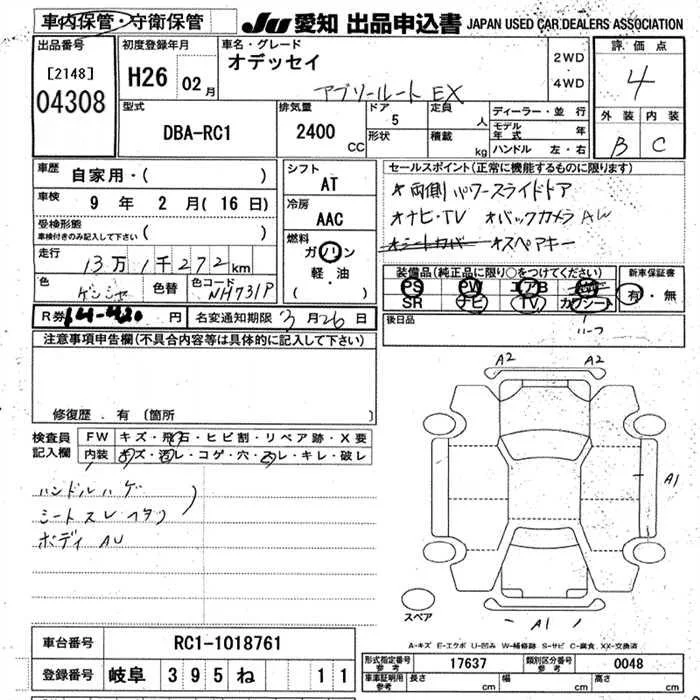 車内保管・守衛保管
JU 愛知 出品申込書 JAPAN USED CAR DEALERS ASSOCIATION
出品番号
[2148]
04308
初度登録年月
H26 02月
車名・グレード
オデッセイ
アブソールート EX
2WD
4WD
評価点
4
外装 内装
B C
型式
DBA-RC1
排気量
2400 CC
ドア 5
形状
定員 人
積載 kg
ディーラー・並行
モデル年式 年
ハンドル 左・右
車歴
自家用・( )
車検
9年 2月(16日)
受検形態
車検付きのみ記入して下さい ( )
走行
13万1千272km
色 色替 色コード NH731P
シフト
AT
冷房
AAC
燃料
ガソリン
軽・油
( )
セールスポイント(正常に機能するものに限ります)
両側パワースライドドア
ナビ・TV バックカメラ AW
シートカバー スペアキー
装備品(純正品に限り○をつけてください)
PS PW エアB AW
SR ナビ TV カワシート
ハーフ
新車保証書
有・無
後日品
R券 円
名変通知期限 3月26日
注意事項申告欄(不具合内容等は具体的に記入して下さい)
修復歴・有(箇所 )
検査員記入欄
FW キズ・飛石・ヒビ割・リペア跡・X要
内装 キズ・汚レ・コゲ・穴・スレ・キレ・破レ
ハンドルハゲ
シートスレヘタリ
ボディ AU
A2 A2
A1
A1
スペア
A-キズ E-エクボ U-凹み W-補修跡 S-サビ C-腐食 XX-交換済
車台番号 RC1-1018761
登録番号 岐阜 395 ね 11
型式指定番号参考 17637 類別区分番号参考 0048
車庫証明用参考 長さ cm 幅 cm 高さ cm